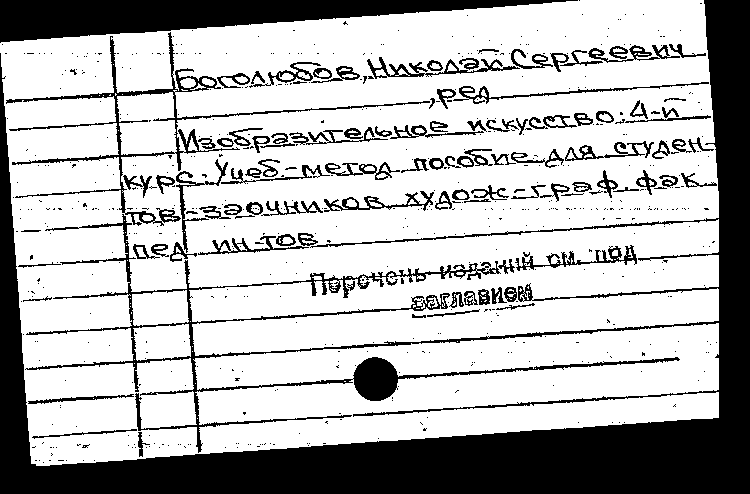 Боголюбов, Николай Сергеевич
, ред
Изобразительное искусство: 4-й
курс: Учеб.-метод пособие для студен-
тов-заочников худож-граф. фак
пед ин-тов.
Перечень изданий см. под
заглавием